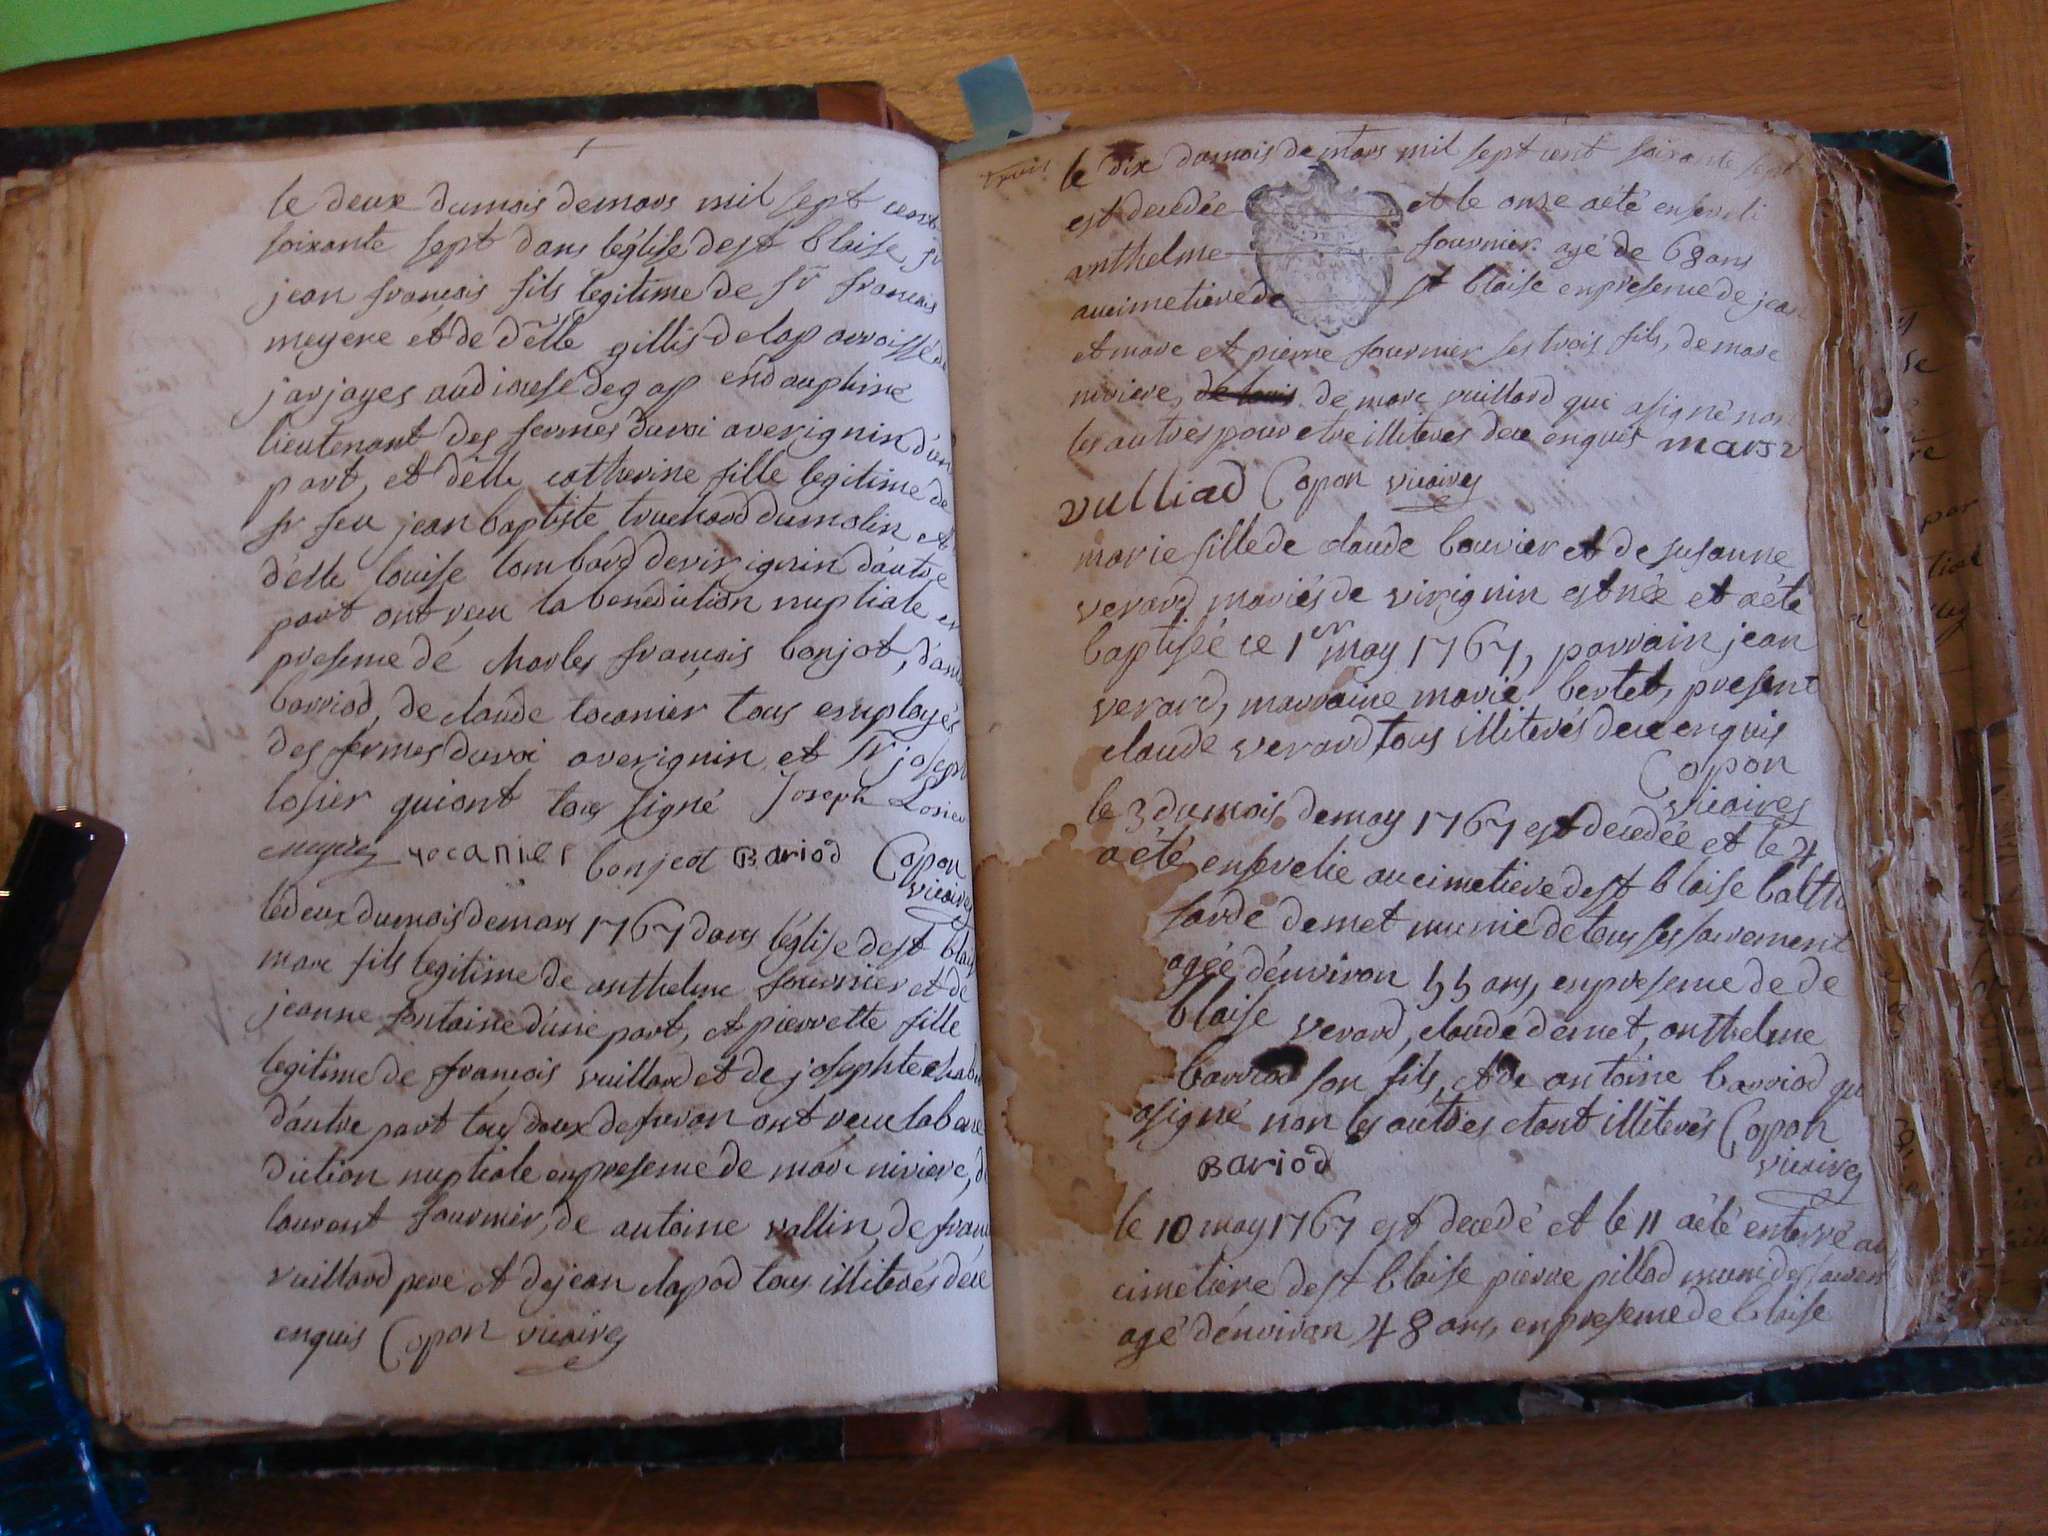 le deux dumois demars mil sept cent
soixante sept dans léglise de st blaise, sr
jean francois fils legitime de sr francois
meyere et de délle gillis delaparroisse de
jarjayes audiocese de gap en dauphiné
lieutenant des fermes du roi averignin d'une
part, et délle catherine fille legitime de
sr feu jean baptiste truchard dumolin et
délle louise lombard de virignin d'autre
part ont reçu la benediction nuptiale en
presence dé charles francois bonjot, d'ant
barriod, de claude tocanier tous employés
des fermes du roi averignin et sr joseph
losier qui ont tous signé Joseph Losier
tocanier bonjeot Bariod Copon
vicaires
le deux dumois demars 1767 dans léglise de st blaise
marc fils legitime de anthelme fournier et de
jeanne fontaine d'une part, et pierrette fille
legitime de francois vuillard et de josephte
d'autre part tous deux de ont reçu la bene
diction nuptiale en presence de marc niviere, de
laurent fournier, de antoine vallin, de franc
vuillard pere et de jean clapod tous illiterés de ce
enquis Copon vicaires
le dix dumois de mars mil sept cent soixante sept
est decedée et le onze aété enseveli
anthelme fournier agé de 68 ans
au cimetiere de st blaise en presence de jean
et marc et pierre fournier ses trois fils, de marc
niviere, de louis de marc vuillard qui asigné non
les autres pour etre illiteres de ce enquis mars v
vulliad Copon vicaires
marie fille de claude bouvier et de susanne
verard mariés de virignin est née et aété
baptisée ce 1er may 1767, parrain jean
verard, marraine marie bertet, present
claude verard tous illiterés de ce enquis
Copon
vicaires
le 3 dumois demay 1767 est decedée et le 4
aété ensevelie au cimetiere de st blaise balth
sarde demet munie de tous ses sacrement
agée d'environ 55 ans, en presence de de
blaise verard, claude demet, anthelme
barriod son fils, et de antoine barriod qui
asigné non les autres étant illiterés Copon
Bariod vicaires
le 10 may 1767 est decedé et le 11 aété enterré au
cimetiere de st blaise pierre pillod muni des sacrem
agé d'environ 48 ans, en presence de blaise